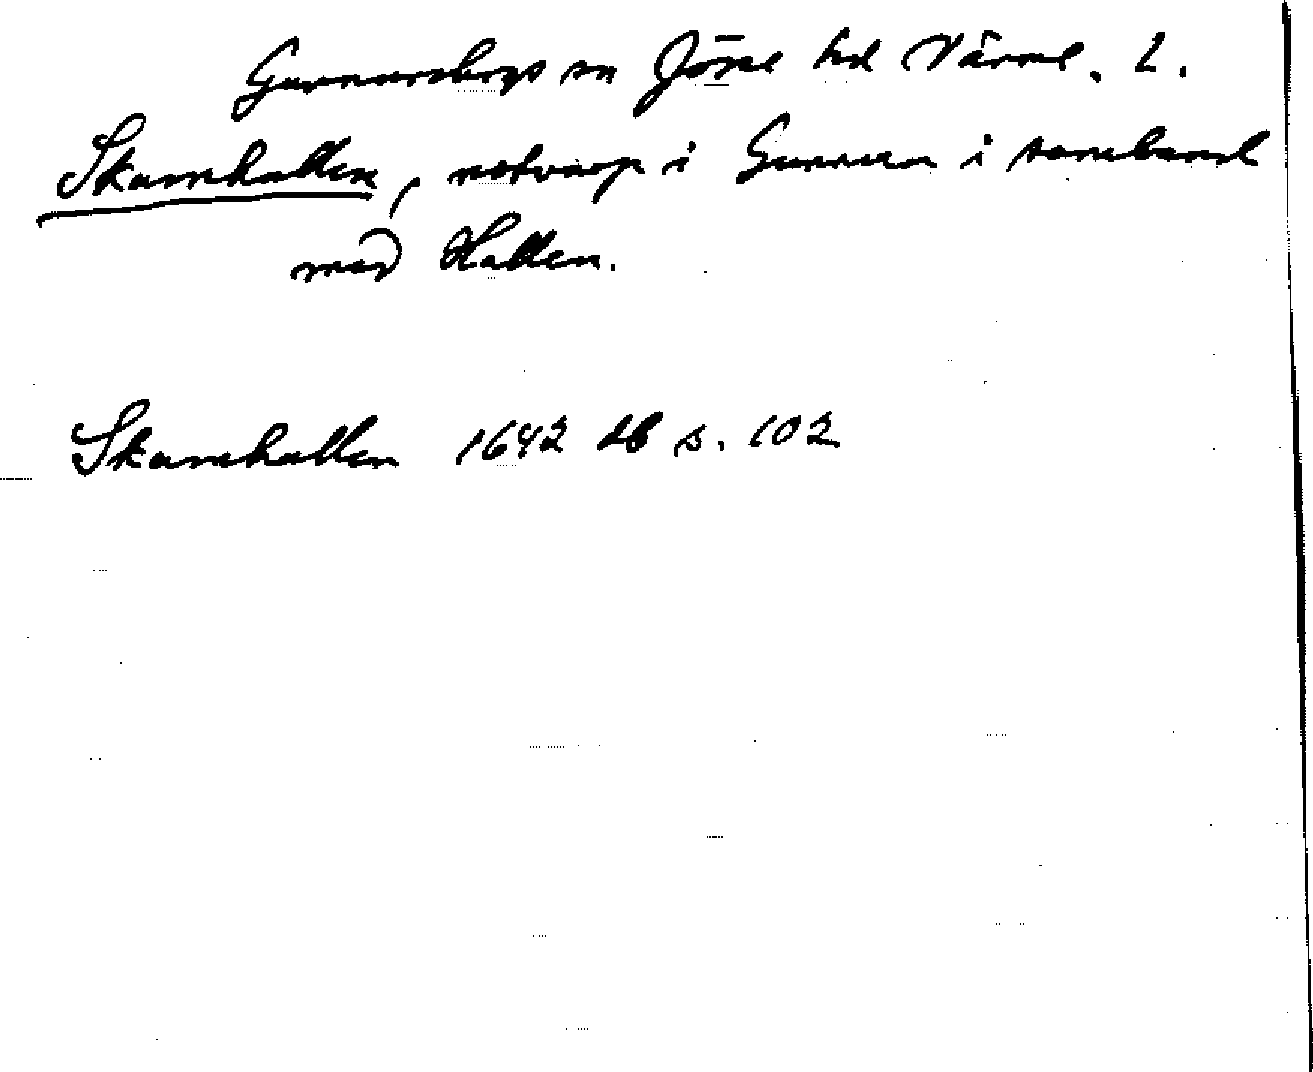 Gunnarsbogs sn Jösse hd Värml. L.
Skamhallen, notvarp i Gunnern i samband
med Hallen.
Skamhallen 1642 db s. 102